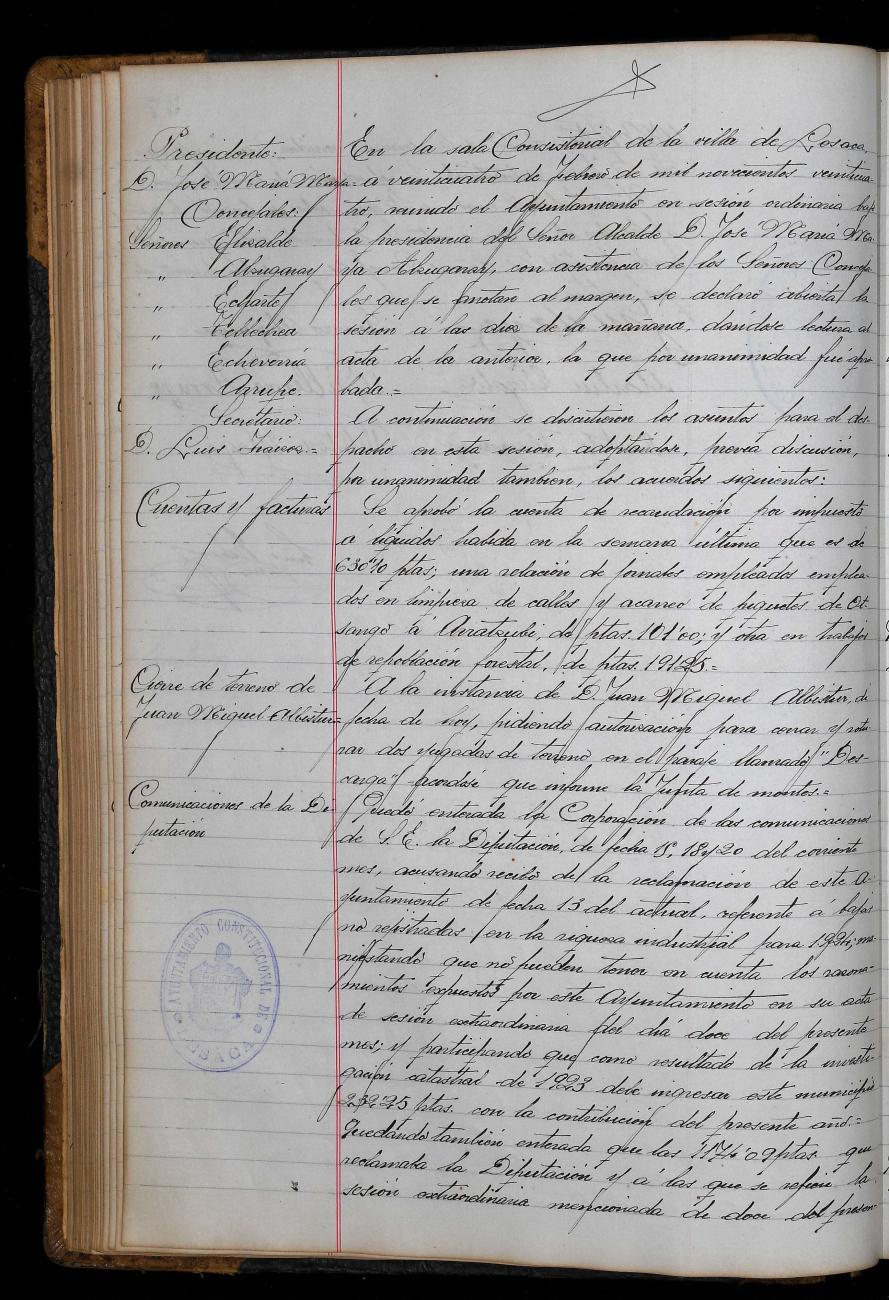 Presidente:
D. José María Maya=
Concejales:
Señores Elizalde
„ Alzugaray
„ Echarte
„ Tellechea
„ Echeverría
„ Azrupe.
Secretario:
D. Luis
Cuentas y facturas
Cierre de terreno de
Juan Miguel Albistur=
Comunicaciones de la Di-
putación
AYUNTAMIENTO CONSTITUCIONAL DE
LESACA
En la sala Consistorial de la villa de Lesaca,
á veinticuatro de Febrero de mil novecientos veinticua-
tro, reunido el Ayuntamiento en sesión ordinaria bajo
la presidencia del Señor Alcalde D. José María Ma-
ya Alzugaray, con asistencia de los Señores Conceja-
les que se anotan al margen, se declaró abierta la
sesión á las diez de la mañana, dándose lectura al
acta de la anterior, la que por unanimidad fué apro-
bada.=
A continuación se discutieron los asuntos para el des-
pacho en esta sesión, adoptándose, previa discusión,
por unanimidad tambien, los acuerdos siguientes:
Se aprobó la cuenta de recaudación por impuesto
á líquidos habida en la semana última que es de
630"10 ptas; una relación de jornales empleados emplea-
dos en limpieza de calles y acarreo de piquetes de Ot-
sango á Arratzubi, de ptas. 101'00; y otra en trabajos
de repoblación forestal, de ptas. 191'25.=
A la instancia de D. Juan Miguel Albistur, de
fecha de hoy, pidiendo autorización para cerrar y rotu-
rar dos yugadas de terreno en el paraje llamado "Des-
carga" acordóse que informe la Junta de montes.=
Quedó enterada la Corporación de las comunicaciones
de S.E. la Diputación, de fecha 15, 18 y 20 del corriente
mes, acusando recibo de la reclamación de este A-
yuntamiento de fecha 13 del actual, referente á bajas
no registradas en la riqueza industrial para 1924; ma-
nifestando que no pueden tener en cuenta los razona-
mientos expuestos por este Ayuntamiento en su acta
de sesión extraordinaria del día doce del presente
mes; y participando que como resultado de la investi-
gación catastral de 1923 debe ingresar este municipio
232'75 ptas. con la contribución del presente año.=
Quedando también enterada que las 1174'09 ptas. que
reclamaba la Diputación y á las que se refiere la
sesión extraordinaria mencionada de doce del presen-